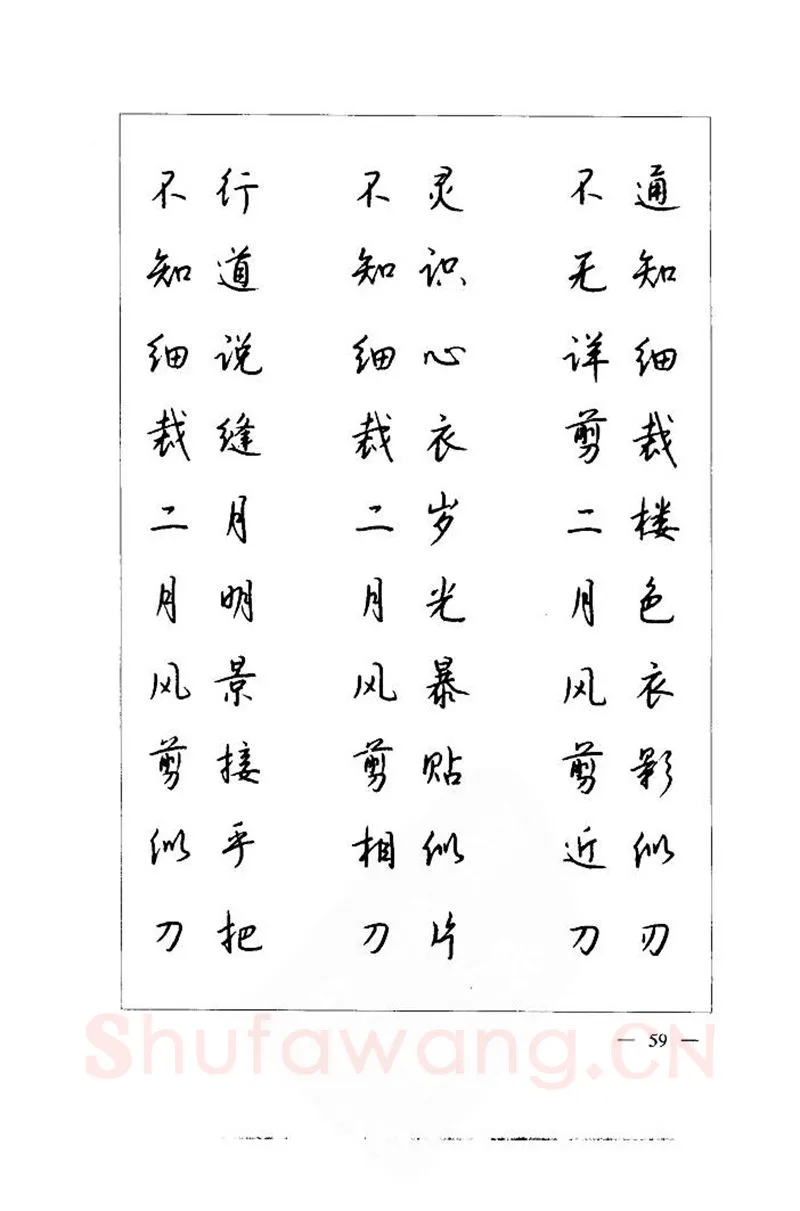 不行 不灵 不通
知道 知识 无知
细说 细心 详细
裁缝 裁衣 剪裁
二月 二岁 二楼
月明 月光 月色
风景 风暴 风衣
剪接 剪贴 剪影
似乎 相似 近似
刀把 刀片 刀刃
— 59 —
Shufawang.CN